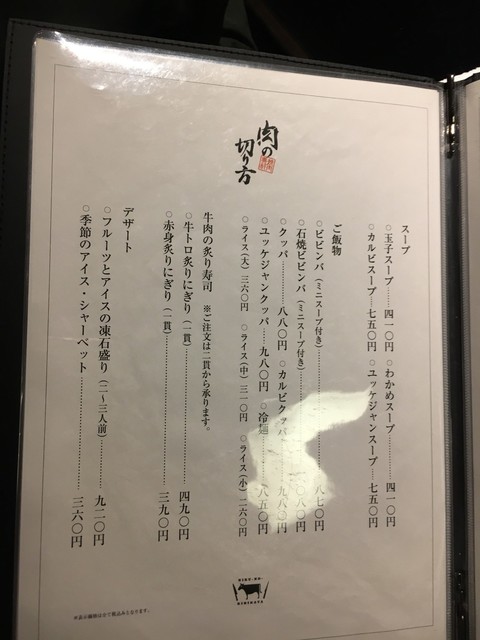 肉の
切り方
スープ
○玉子スープ……四一〇円 ○わかめスープ……四一〇円
○カルビスープ……七五〇円 ○ユッケジャンスープ……七五〇円
ご飯物
○ビビンバ（ミニスープ付き）……八七〇円
○石焼ビビンバ（ミニスープ付き）
○クッパ……八八〇円 ○カルビクッパ……九八〇円
○ユッケジャンクッパ……九八〇円 ○冷麺……八五〇円
○ライス（大）三六〇円 ○ライス（中）三一〇円 ○ライス（小）二六〇円
牛肉の炙り寿司 ※ご注文は二貫から承ります。
○牛トロ炙りにぎり（一貫）……四九〇円
○赤身炙りにぎり（一貫）……三九〇円
デザート
○フルーツとアイスの凍石盛り（二〜三人前）……九二〇円
○季節のアイス・シャーベット……三六〇円
NIKU-NO-
KIRIKATA
※表示価格は全て税込みとなります。